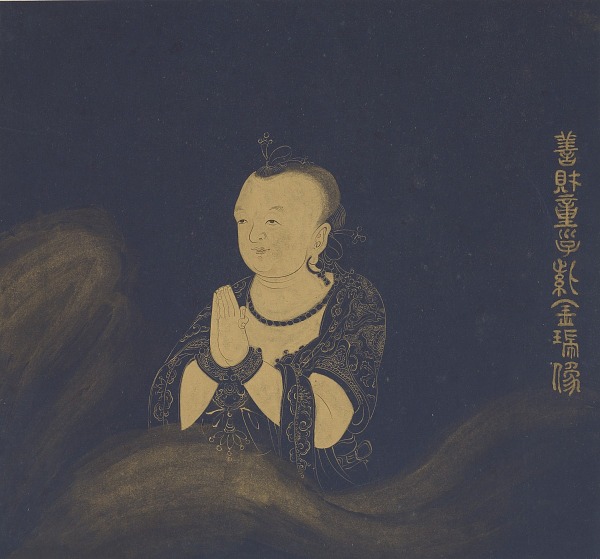 善財童子紫金瑞像